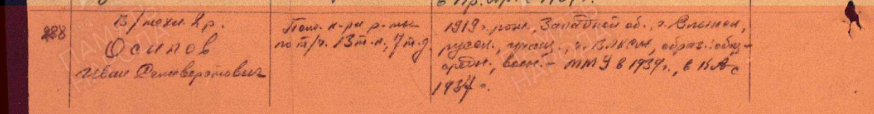 288
В/техн. 2 р.
Осипов
Иван Селиверстович
Пом. к-ра р-ты
по т/ч. 13 т.п., 7 т.д.
1919 г. рожд., Западной об., г.
русск., служащ., ч. ВЛКСМ, образ.: общ.-
средн., воен. - ММУ в 1939 г., в КА с
1937 г.